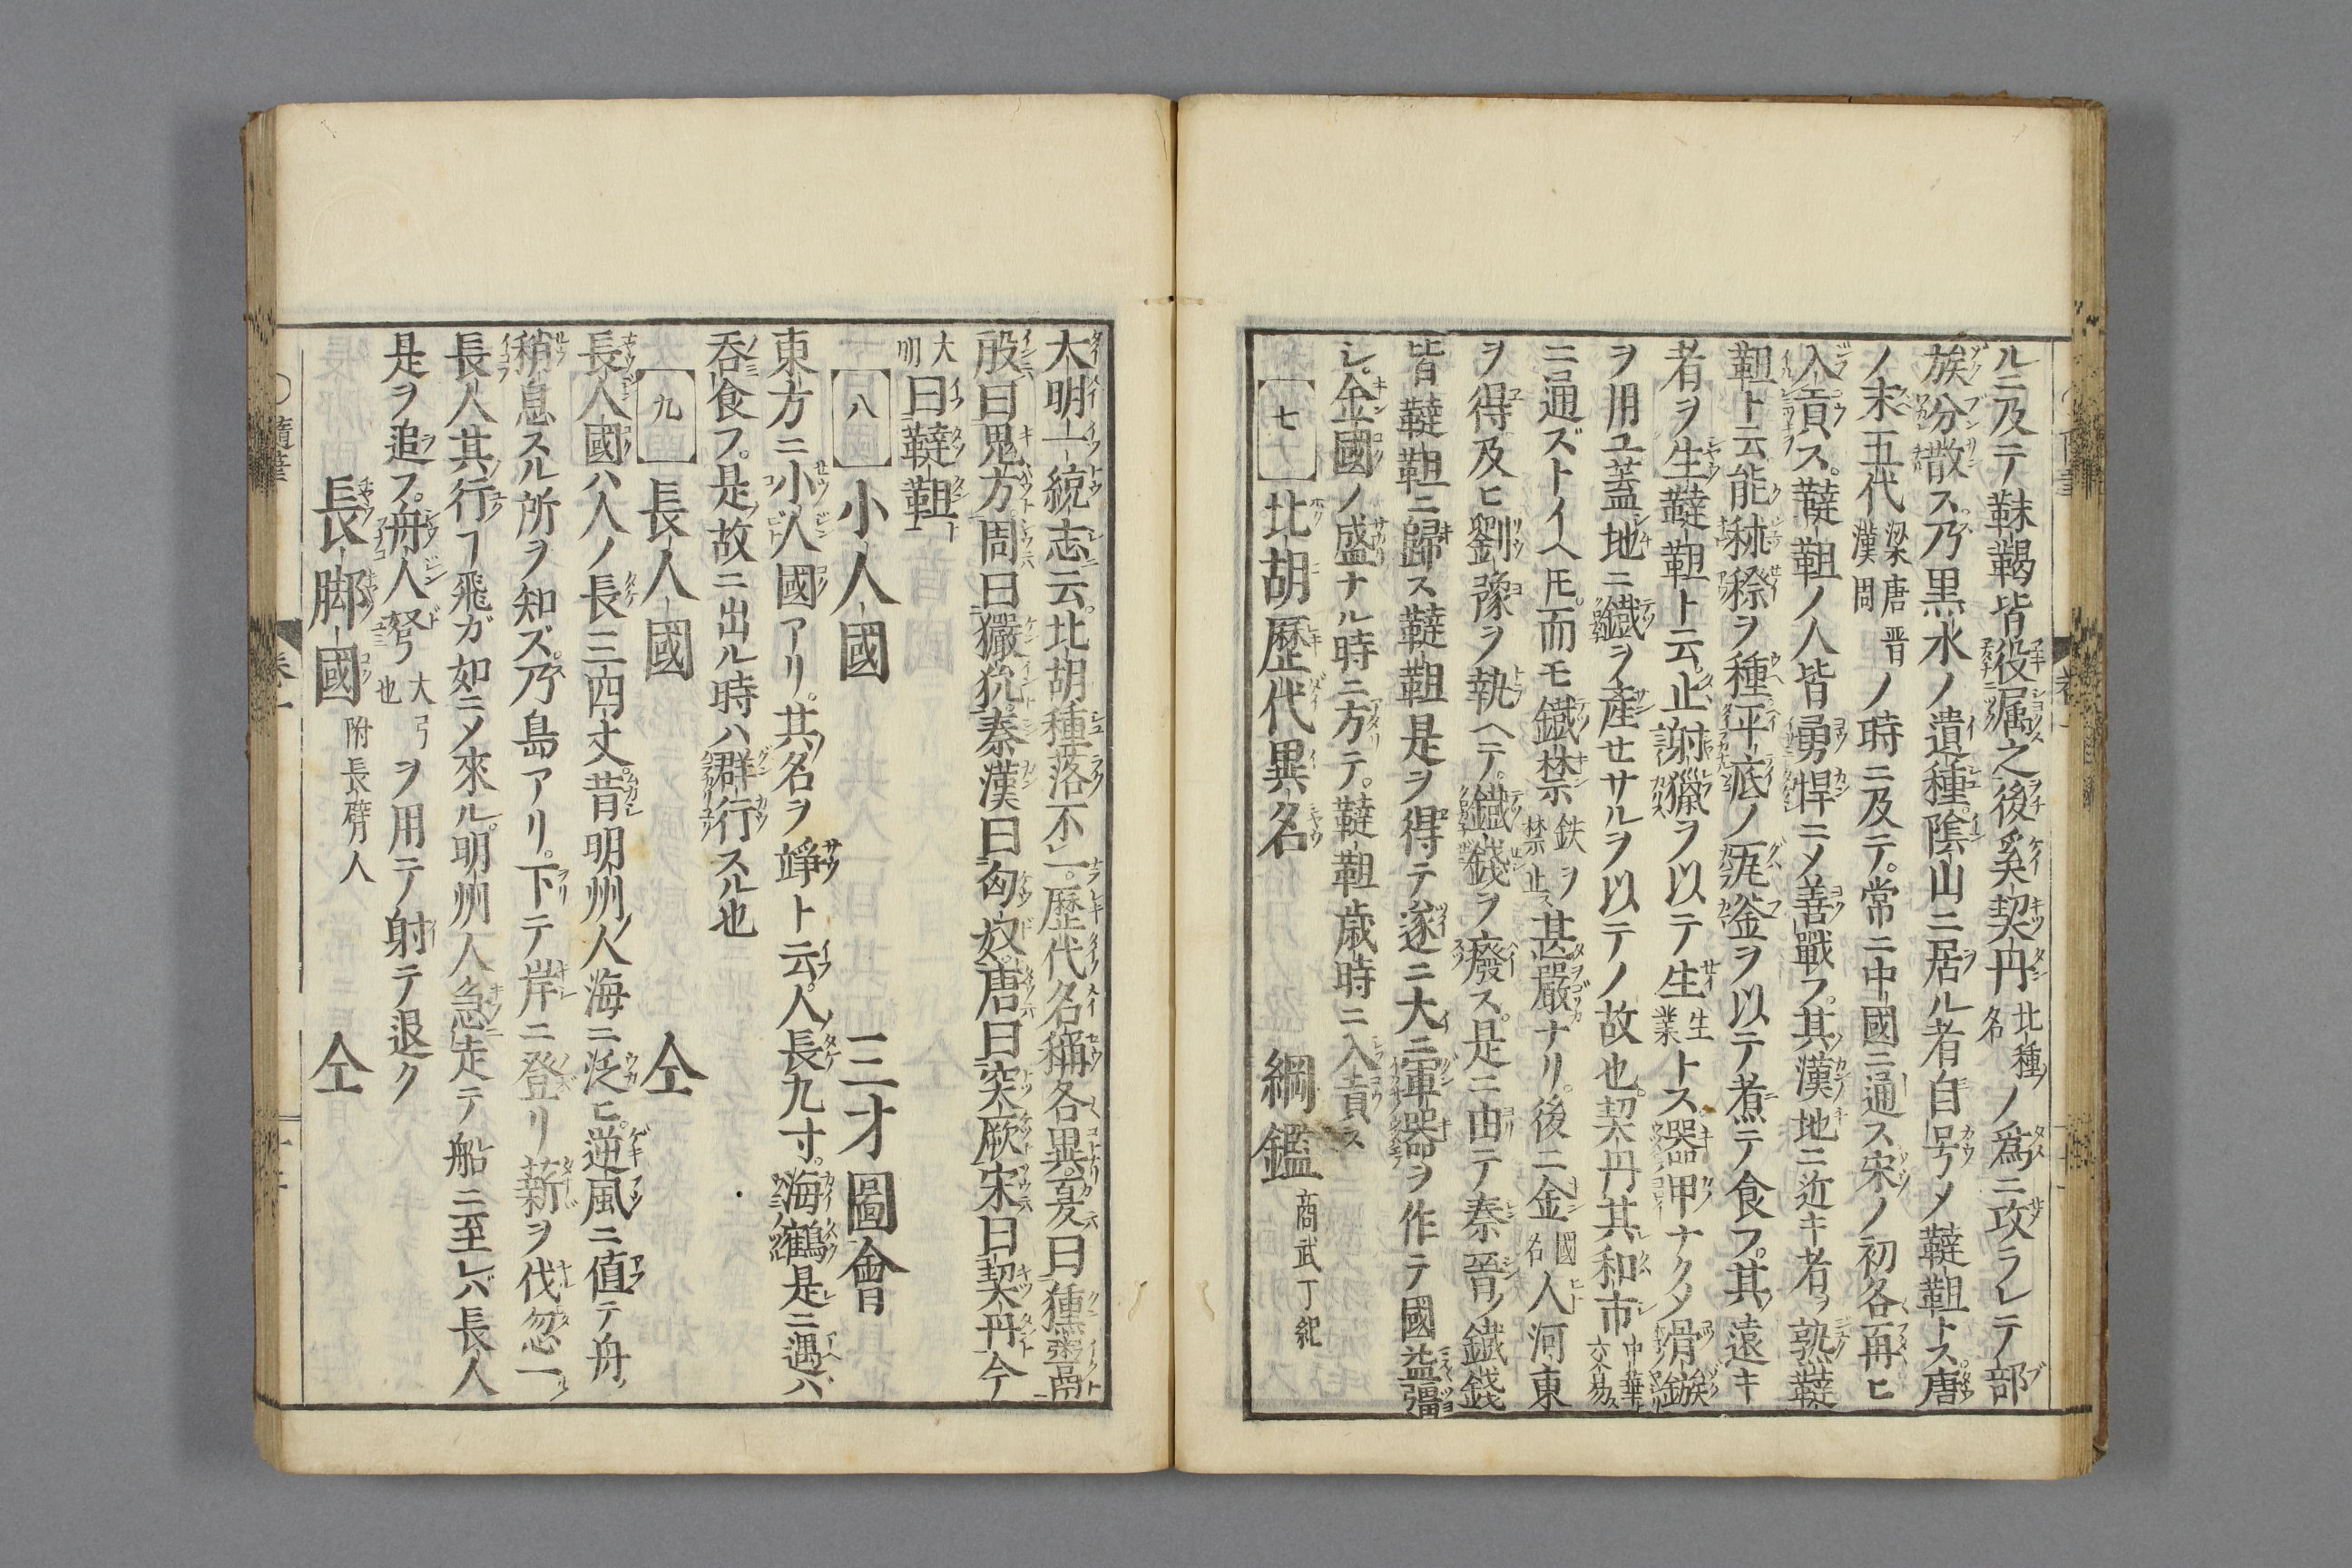 ルニ及テ靺鞨皆役属之後奚契丹北種ノ名ノ爲ニ攻ラレテ部
族分散ス乃黒水ノ遺種陰山ニ居ル者自号メ韃靼トス唐
ノ末五代梁唐晋漢周ノ時ニ及テ常ニ中國ニ通ス宋ノ初各再ヒ
入貢ス韃靼ノ人皆勇悍ニメ善戰フ其漢地ニ近キ者ヲ熟韃
靼ト云能秫穄ヲ種平底ノ瓦釜ヲ以テ煮テ食フ其遠キ
者ヲ生韃靼ト云止射獵ヲ以テ生生業トス器甲ナクメ骨鏃
ヲ用ユ蓋地ニ鐵ヲ産セサルヲ以テノ故也契丹其和市中華ト交易ス
ニ通ズトイヘ𪜈而モ鐵禁鉄ヲ禁止ス甚嚴ナリ後ニ金國名人河東
ヲ得及ヒ劉豫ヲ執ヘテ鐵錢ヲ廢ス是ニ由テ秦晉ノ鐵錢
皆韃靼ニ歸ス韃靼是ヲ得テ遂ニ大ニ軍器ヲ作テ國益彊
シ金國ノ盛ナル時ニ方テ韃靼歳時ニ入貢ス
七 北胡歴代異名 綱鑑 商武丁紀
大明一統志云北胡種落不一歴代名稱各異夏曰獯鬻
殷曰鬼方周曰玁狁秦漢曰匈奴唐曰突厥宋曰契丹今
大明曰韃靼
八 小人國 三才圖會
東方ニ小人國アリ其名ヲ竫ト云人長九寸海鶴是ニ遇ハ
呑食フ是故ニ出ル時ハ群行スル也
九 長人國 仝
長人國ハ人ノ長三四丈昔明州ノ人海ニ泛ヒ逆風ニ値テ舟ノ
稍息スル所ヲ知ズ乃島アリ下テ岸ニ登リ薪ヲ伐忽一ノ
長人其行ヿ飛ガ如ニメ來ル明州人急走テ船ニ至レバ長人
是ヲ追フ舟人弩大弓也ヲ用テ射テ退ク
長脚國 附長臂人 仝